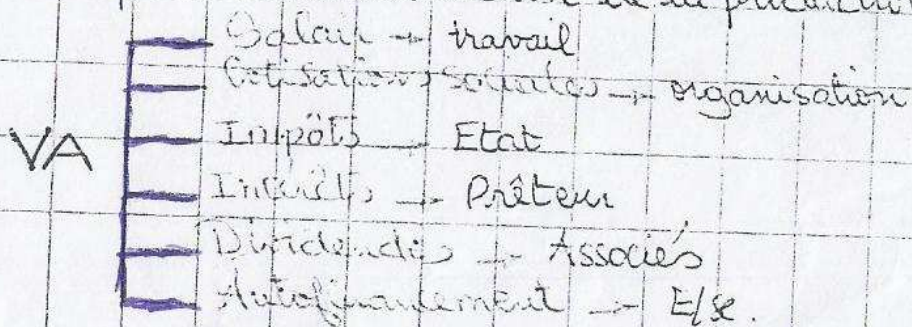 de la production
Salair → travail
Cotisations sociales → organisation
VA
Impôts → Etat
Intérêts → Prêteur
Dividendes → Associés
Autofinancement → E/se.